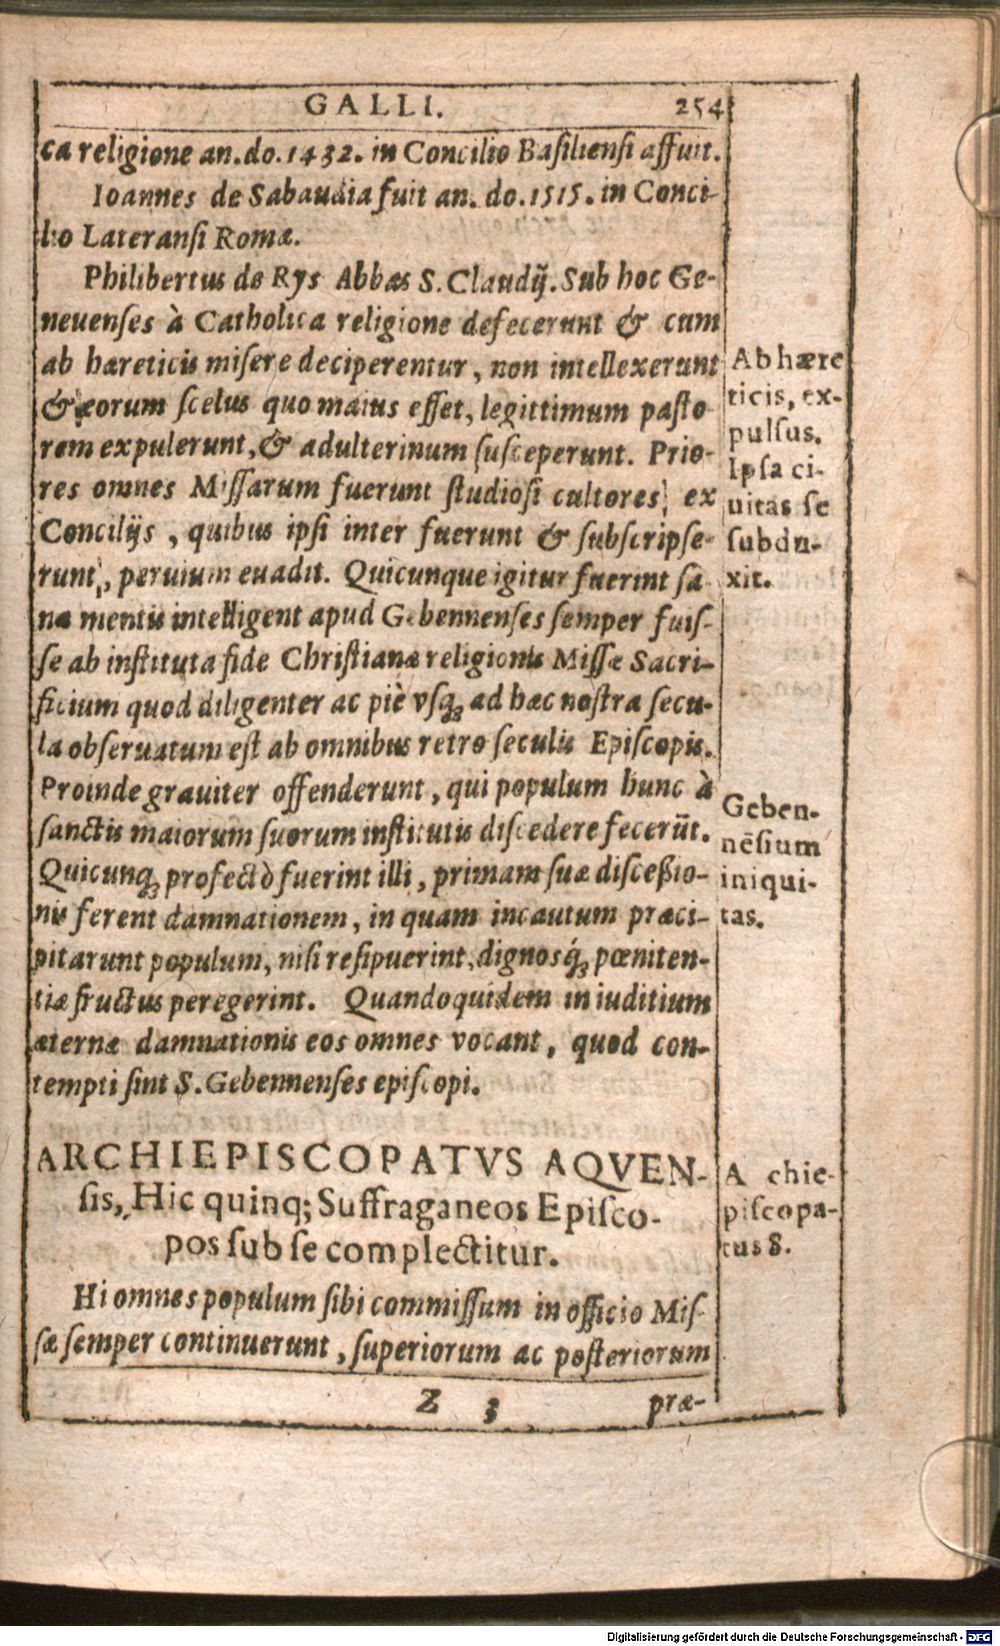 GALLI. 254
ca religione an. do. 1432. in Concilio Basiliensi affuit.
Ioannes de Sabaudia fuit an. do. 1515. in Conci-
lio Lateransi Romæ.
Philibertus de Rys Abbas S. Claudij. Sub hoc Ge-
neuenses à Catholica religione defecerunt & cum
ab hæreticis misere deciperentur, non intellexerunt
& eorum scelus quo maius esset, legittimum pasto
rem expulerunt, & adulterinum susceperunt. Prio-
res omnes Missarum fuerunt studiosi cultores, ex
Concilijs, quibus ipsi inter fuerunt & subscripse-
runt, peruium euadit. Quicunque igitur fuerint sa-
næ mentis intelligent apud Gebennenses semper fuis-
se ab instituta fide Christianæ religionis Missæ Sacri-
ficium quod diligenter ac piè vsq; ad hæc nostra secu-
la obseruatum est ab omnibus retro seculis Episcopis.
Proinde grauiter offenderunt, qui populum hunc à
sanctis maiorum suorum institutis discedere fecerũt.
Quicunq; profectò fuerint illi, primam suæ discessio-
nis ferent damnationem, in quam incautum præci-
pitarunt populum, nisi resipuerint, dignosq́; pœniten-
tiæ fructus peregerint. Quandoquidem in iuditium
æternæ damnationis eos omnes vocant, quod con-
tempti sint S. Gebennenses episcopi.
Ab hære
ticis, ex-
pulsus.
Ipsa ci-
uitas se
subdu-
xit.
Geben-
nẽsium
iniqui-
tas.
ARCHIEPISCOPATVS AQVEN-
sis, Hic quinq; Suffraganeos Episco-
pos sub se complectitur.
A chie-
piscopa-
tus 8.
Hi omnes populum sibi commissum in officio Mis-
sæ semper continuerunt, superiorum ac posteriorum
Z 3 præ-
Digitalisierung gefördert durch die Deutsche Forschungsgemeinschaft - DFG